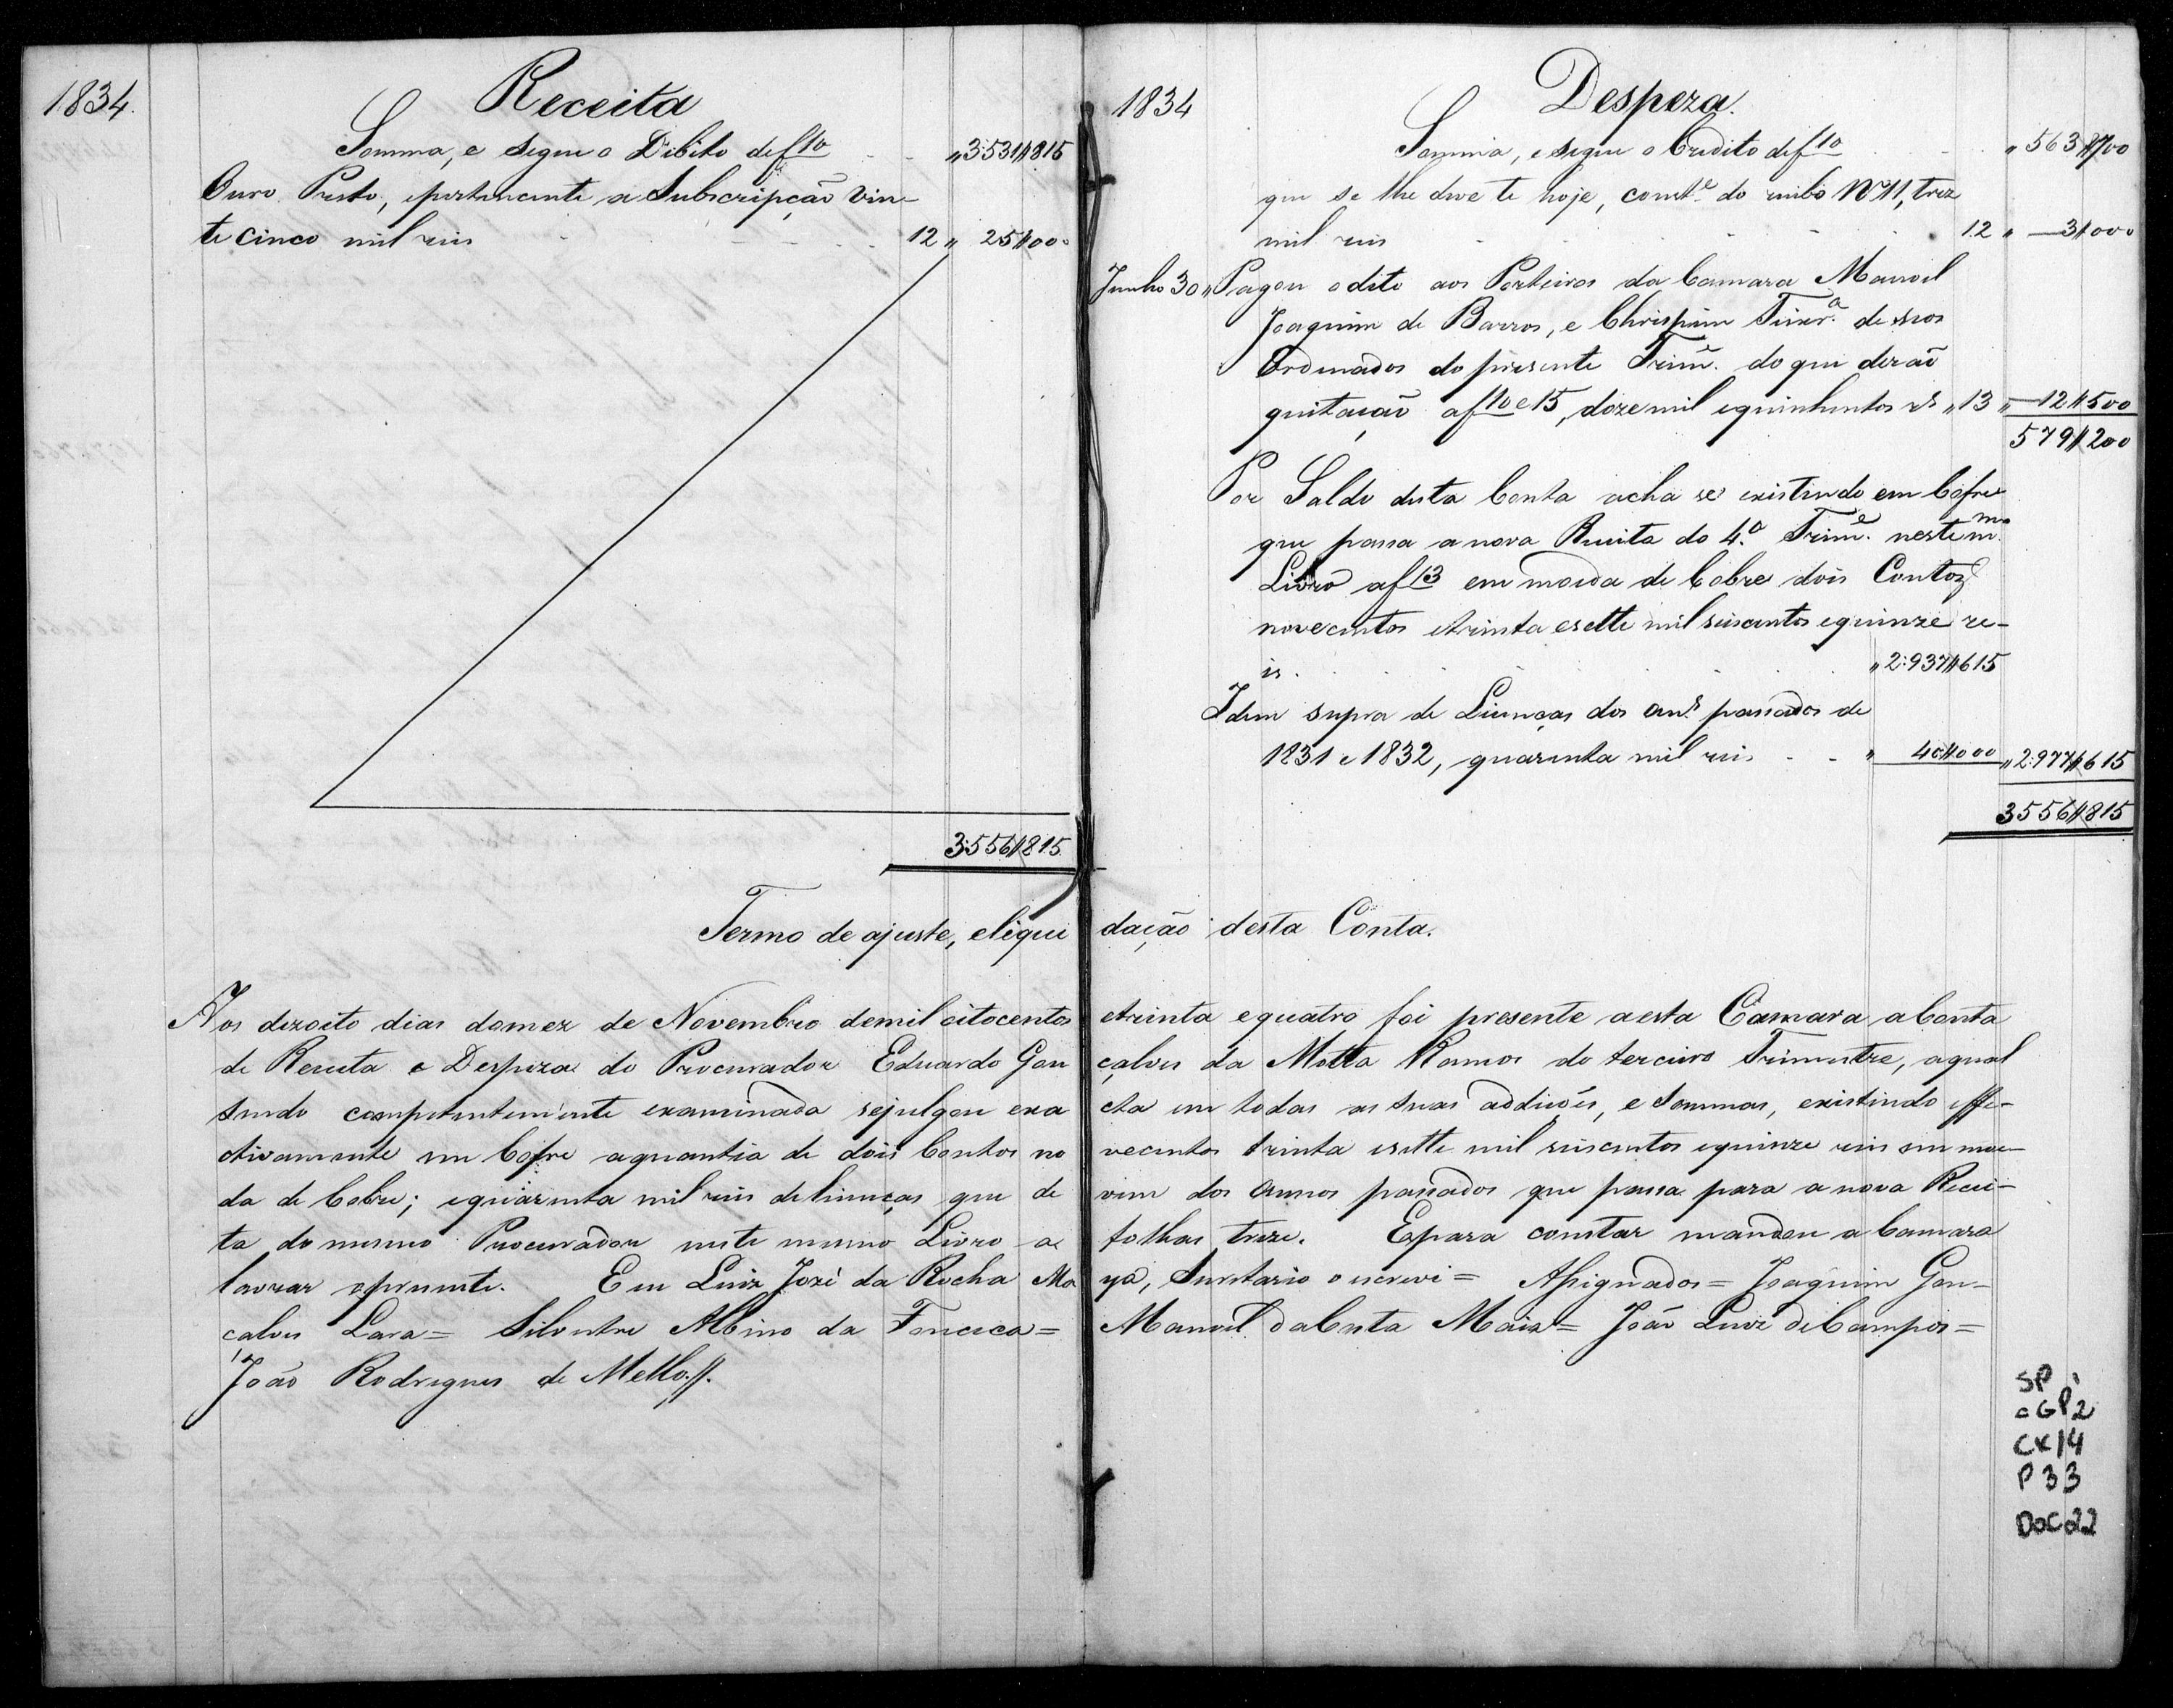 1834.
Receita
Somma, e segue o Debito de f 10 - - " 3:531$815
Ouro Preto, epertencente a Subscripção vin-
te cinco mil reis - - - - 12 " 25$000
3:556$815
1834
Despeza.
Somma, e segue o Credito de f 10 - - " 563$700
que se lhe deve te hoje, const.e do recibo Nº 11, trez
mil reis - - - - - 12 " 3$000
Junho 30 " Pagou o dito aos Porteiros da Camara Manoel
Joaquim de Barros, e Chrispim Teixr.a de seos
Ordenados do presente Trim.e do que derão
quitação a f 10 e 15, doze mil equinhentos rs " 13 " 12$500
579$200
Por Saldo desta Conta acha se existindo em Cofre
que passa a nova Receita do 4.º Trim.e neste m.mo
Livro a f 13 em moeda de Cobre dois Contos
novecentos etrinta esette mil seiscentos equinze re-
is. - - - - " 2:937$615
Idem supra de Licenças dos an.s passados de
1831 e 1832, quarenta mil reis - - " 40$000 " 2:977$615
3556$815
Termo de ajuste, eliqui dação desta Conta.
Aos dezoito dias domez de Novembro demil oitocentos etrinta equatro foi presente aesta Camara aConta
de Receita e Despeza do Procurador Eduardo Gon çalves da Motta Ramos do terceiro Trimestre, aqual
sendo competentemente examinada sejulgou exa cta em todas as suas addições, e Sommas, existindo effe-
ctivamente em Cofre aquantia de dois Contos no vecentos trinta esette mil seiscentos equinze reis em moe-
da de Cobre; equarenta mil reis delicenças que de vem dos annos passados que passa para a nova Recei-
ta do mesmo Procurador neste mesmo Livro a folhas treze. Epara constar mandou a Camara
lavrar opresente. Eu Luiz Jozé da Rocha Ma ya, Secretario o escrevi = Assignados = Joaquim Gon-
çalves Lara = Silvestre Albino da Fonceca = Manoel daCosta Maia = João Luiz deCampos =
João Rodrigues de Mello.//.
SP
CGP2
CX14
P33
DOC22